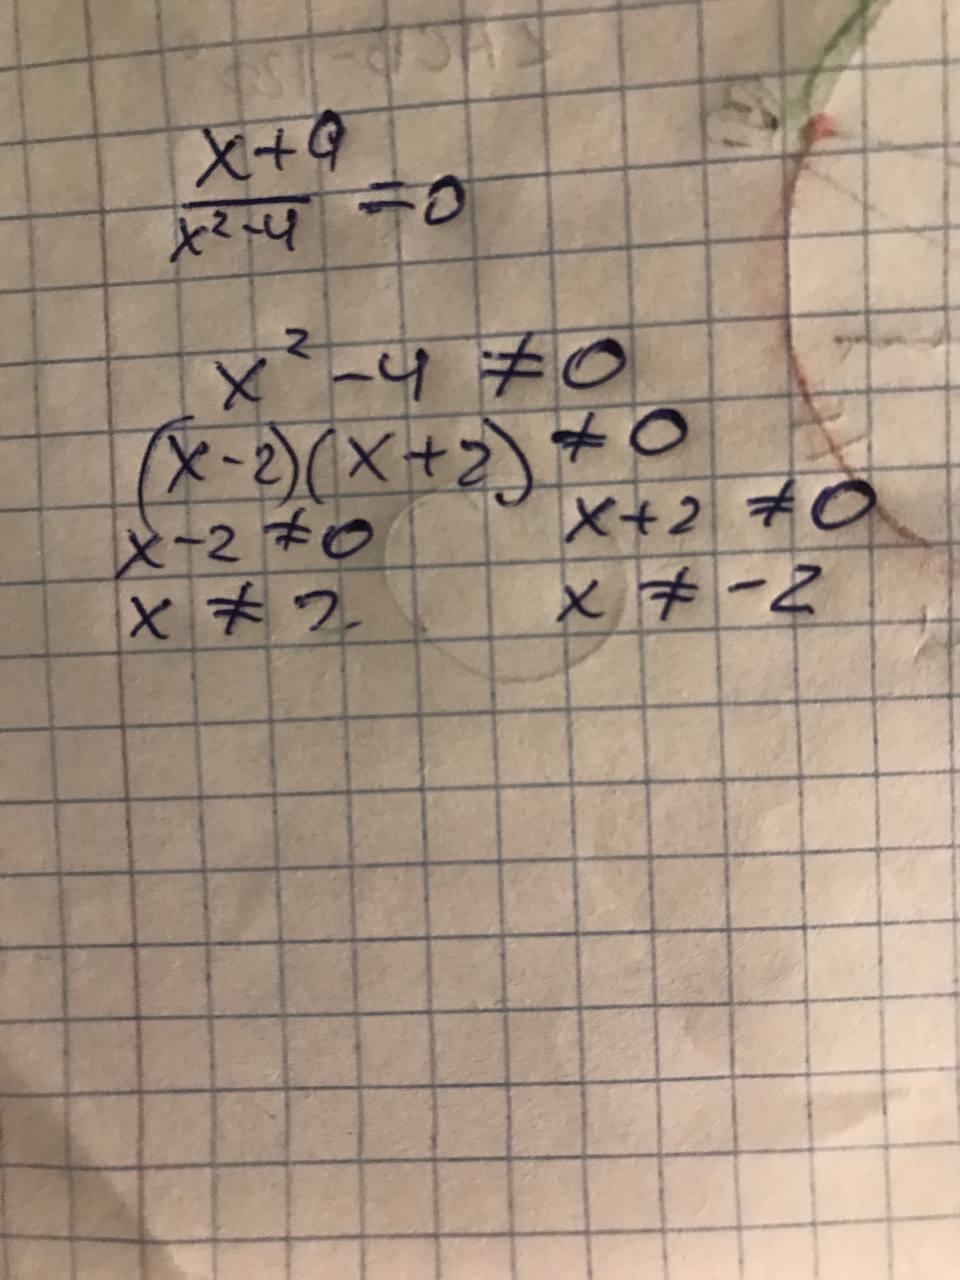 x+9
x²-4 =0
x² -4 ≠0
(x-2)(x+2) ≠0
x-2 ≠0 x+2 ≠0
x ≠ 2. x ≠ -2